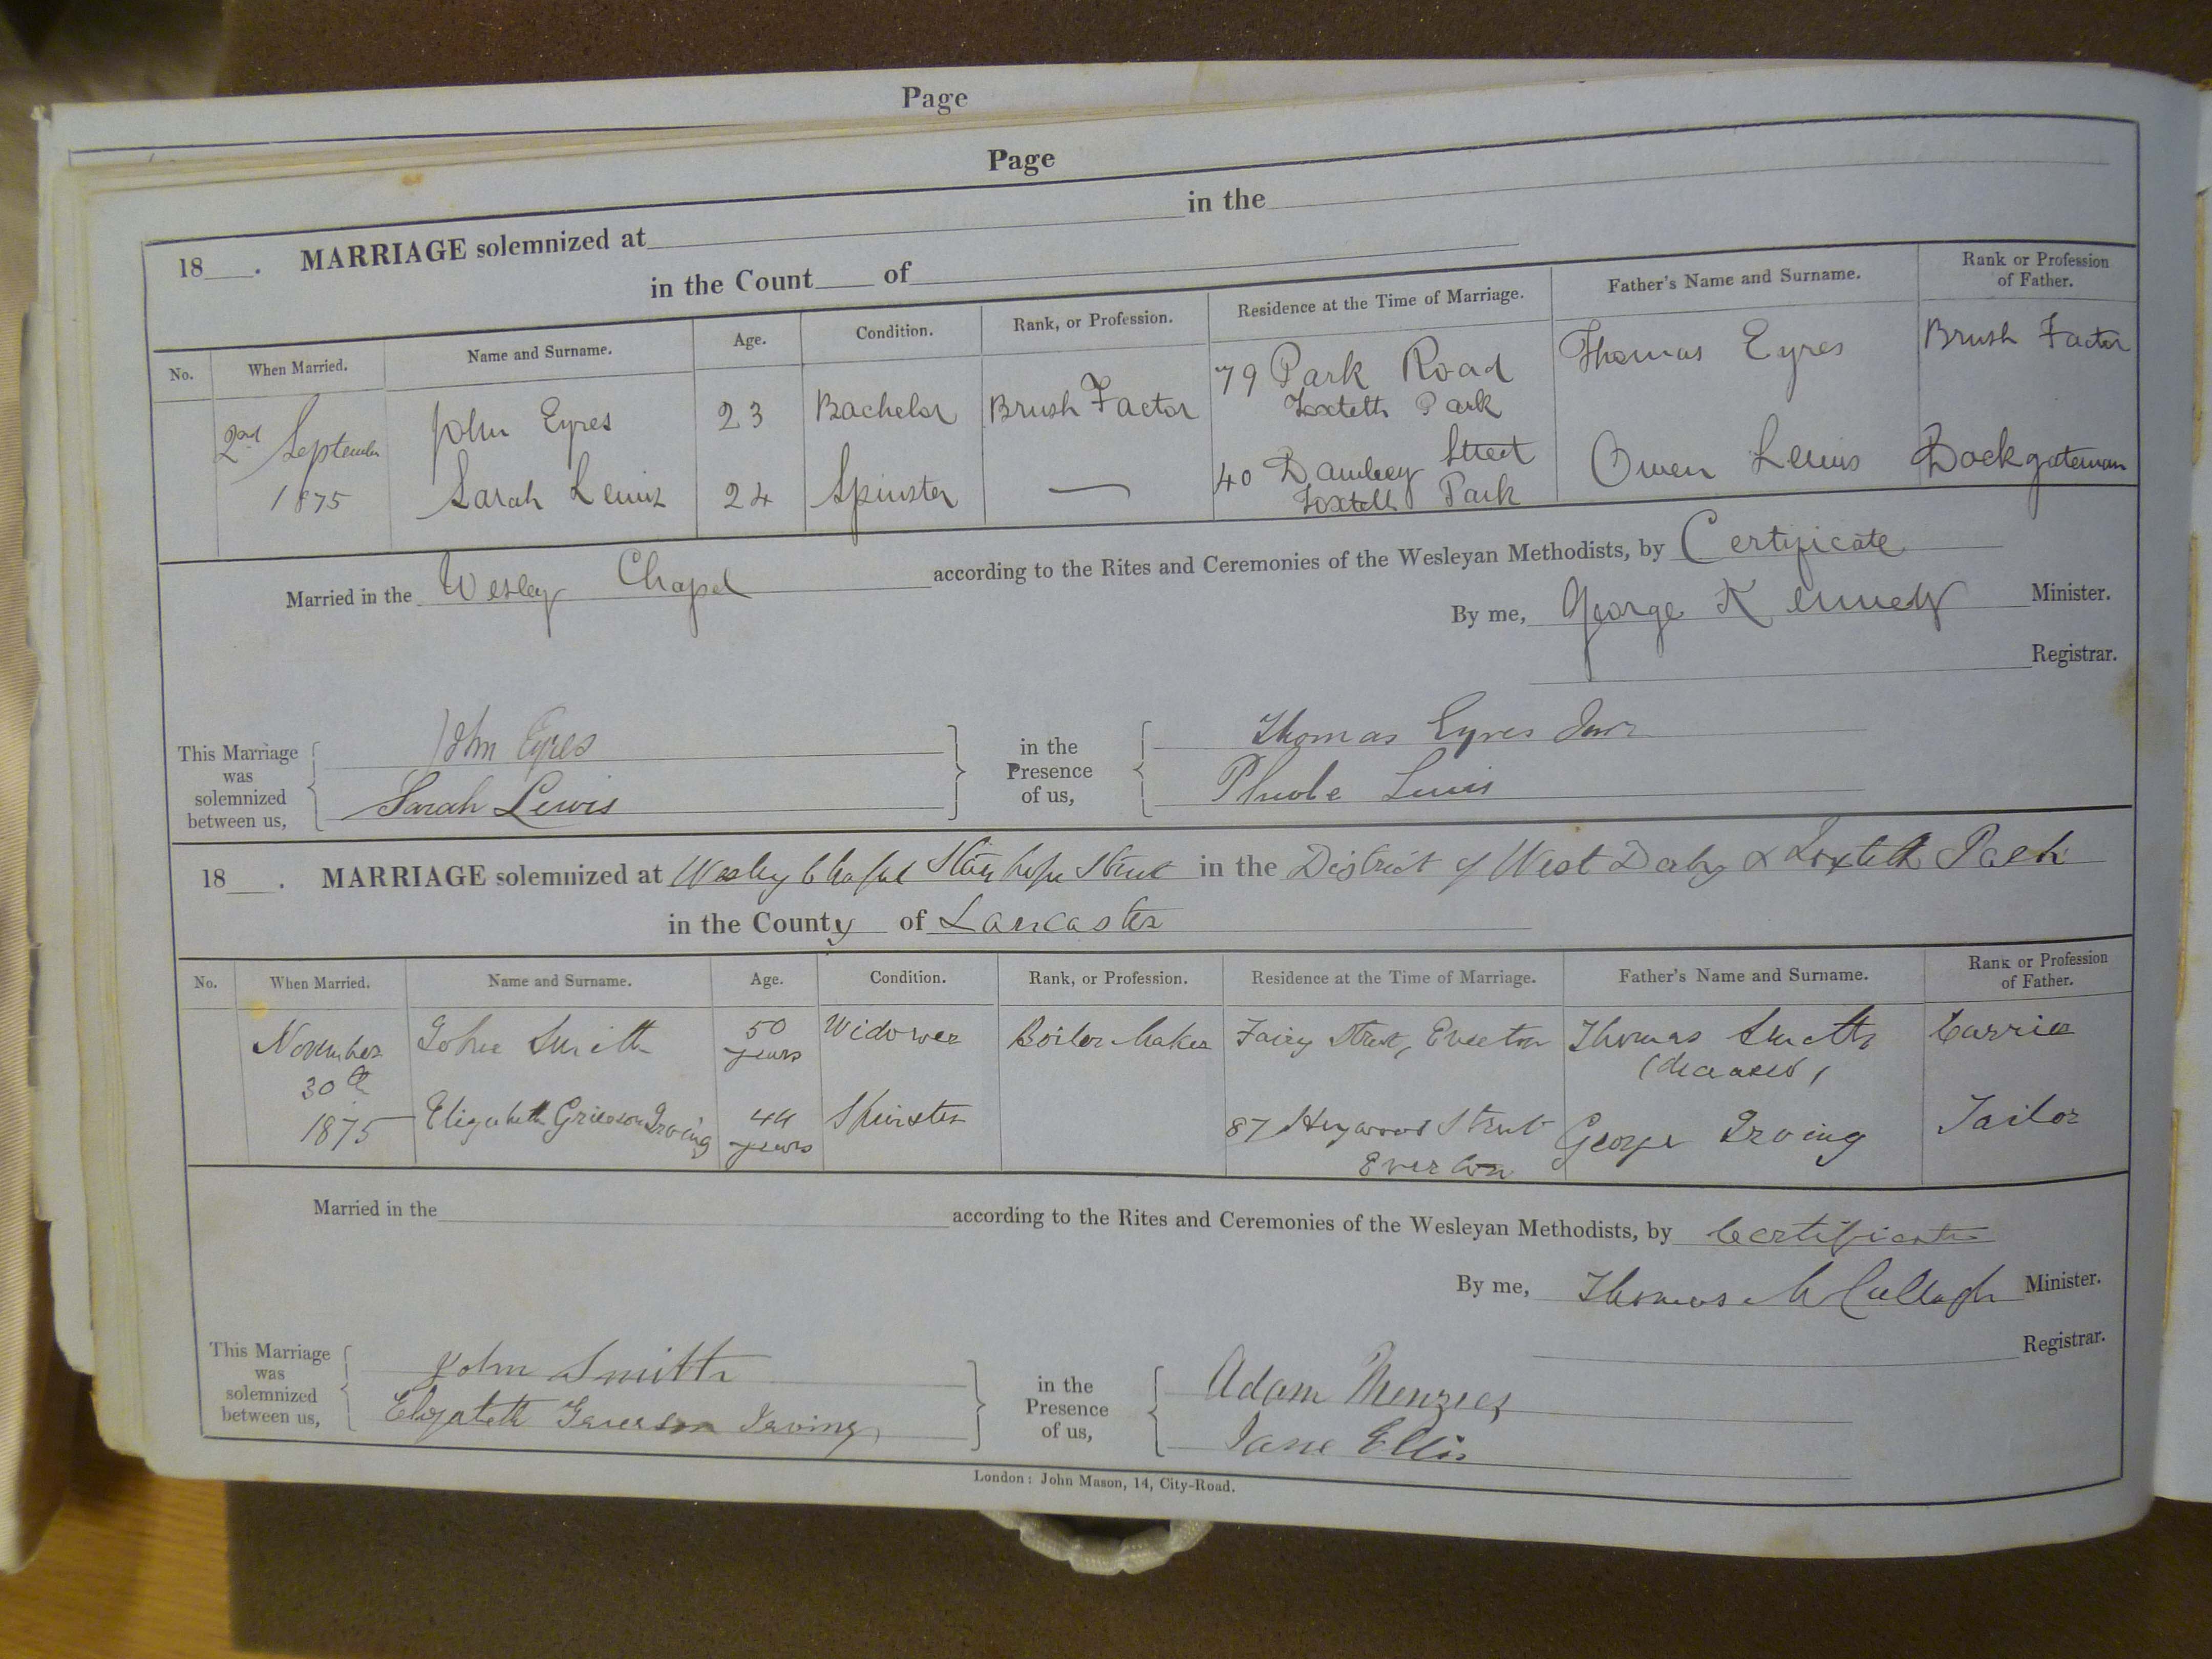 Page
Page
18 . MARRIAGE solemnized at in the
in the Count of
No. When Married. Name and Surname. Age. Condition. Rank, or Profession. Residence at the Time of Marriage. Father's Name and Surname. Rank or Profession of Father.
2nd September John Eyres 23 Bachelor Brush Factor 79 Park Road Toxteth Park Thomas Eyres Brush Factor
1875 Sarah Lewis 24 Spinster — 40 Street Toxteth Park Owen Lewis Dockgateman
Married in the Wesley Chapel according to the Rites and Ceremonies of the Wesleyan Methodists, by Certificate
By me, George Kennedy Minister.
Registrar.
This Marriage was solemnized between us,
John Eyres
Sarah Lewis
in the Presence of us,
Thomas Eyres Junr
Phoebe Lewis
18 . MARRIAGE solemnized at Wesley Chapel Stanhope Street in the District of West Derby & Toxteth Park
in the County of Lancaster
No. When Married. Name and Surname. Age. Condition. Rank, or Profession. Residence at the Time of Marriage. Father's Name and Surname. Rank or Profession of Father.
November 30th John Smith 50 years Widower Boiler Maker Fairy Street, Everton Thomas Smith (deceased) Carrier
1875 Elizabeth Grierson Irving 44 years Spinster 87 Heywood Street Everton George Irving Tailor
Married in the according to the Rites and Ceremonies of the Wesleyan Methodists, by Certificate
By me, Thomas McCullagh Minister.
Registrar.
This Marriage was solemnized between us,
John Smith
Elizabeth Grierson Irving
in the Presence of us,
Adam Menzies
Jane Ellis
London: John Mason, 14, City-Road.